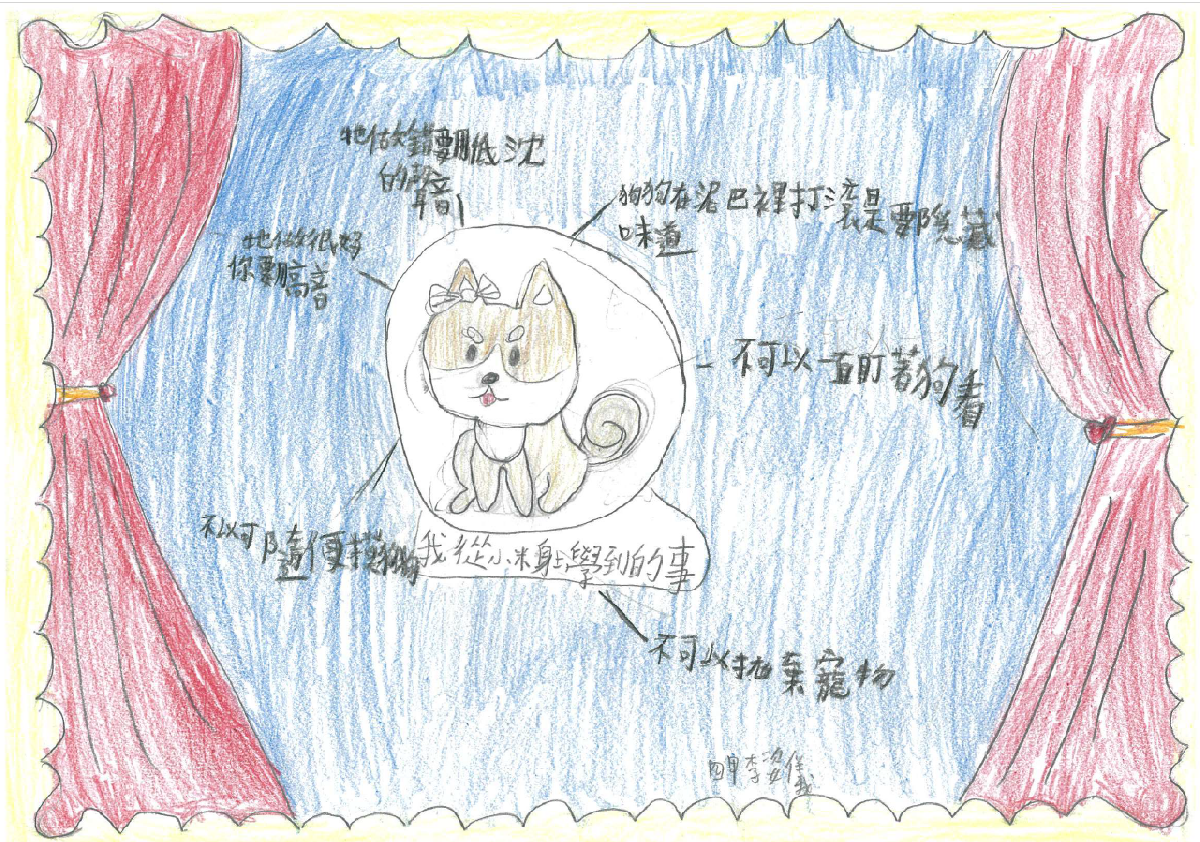 牠做錯要用低沈
的聲音
狗狗在泥巴裡打滾是要隱藏
味道
牠做很好
你要用高音
不可以一直盯著狗看
不以可隨便摸狗狗
我從小米身上學到的事
不可以拋棄寵物
李姿